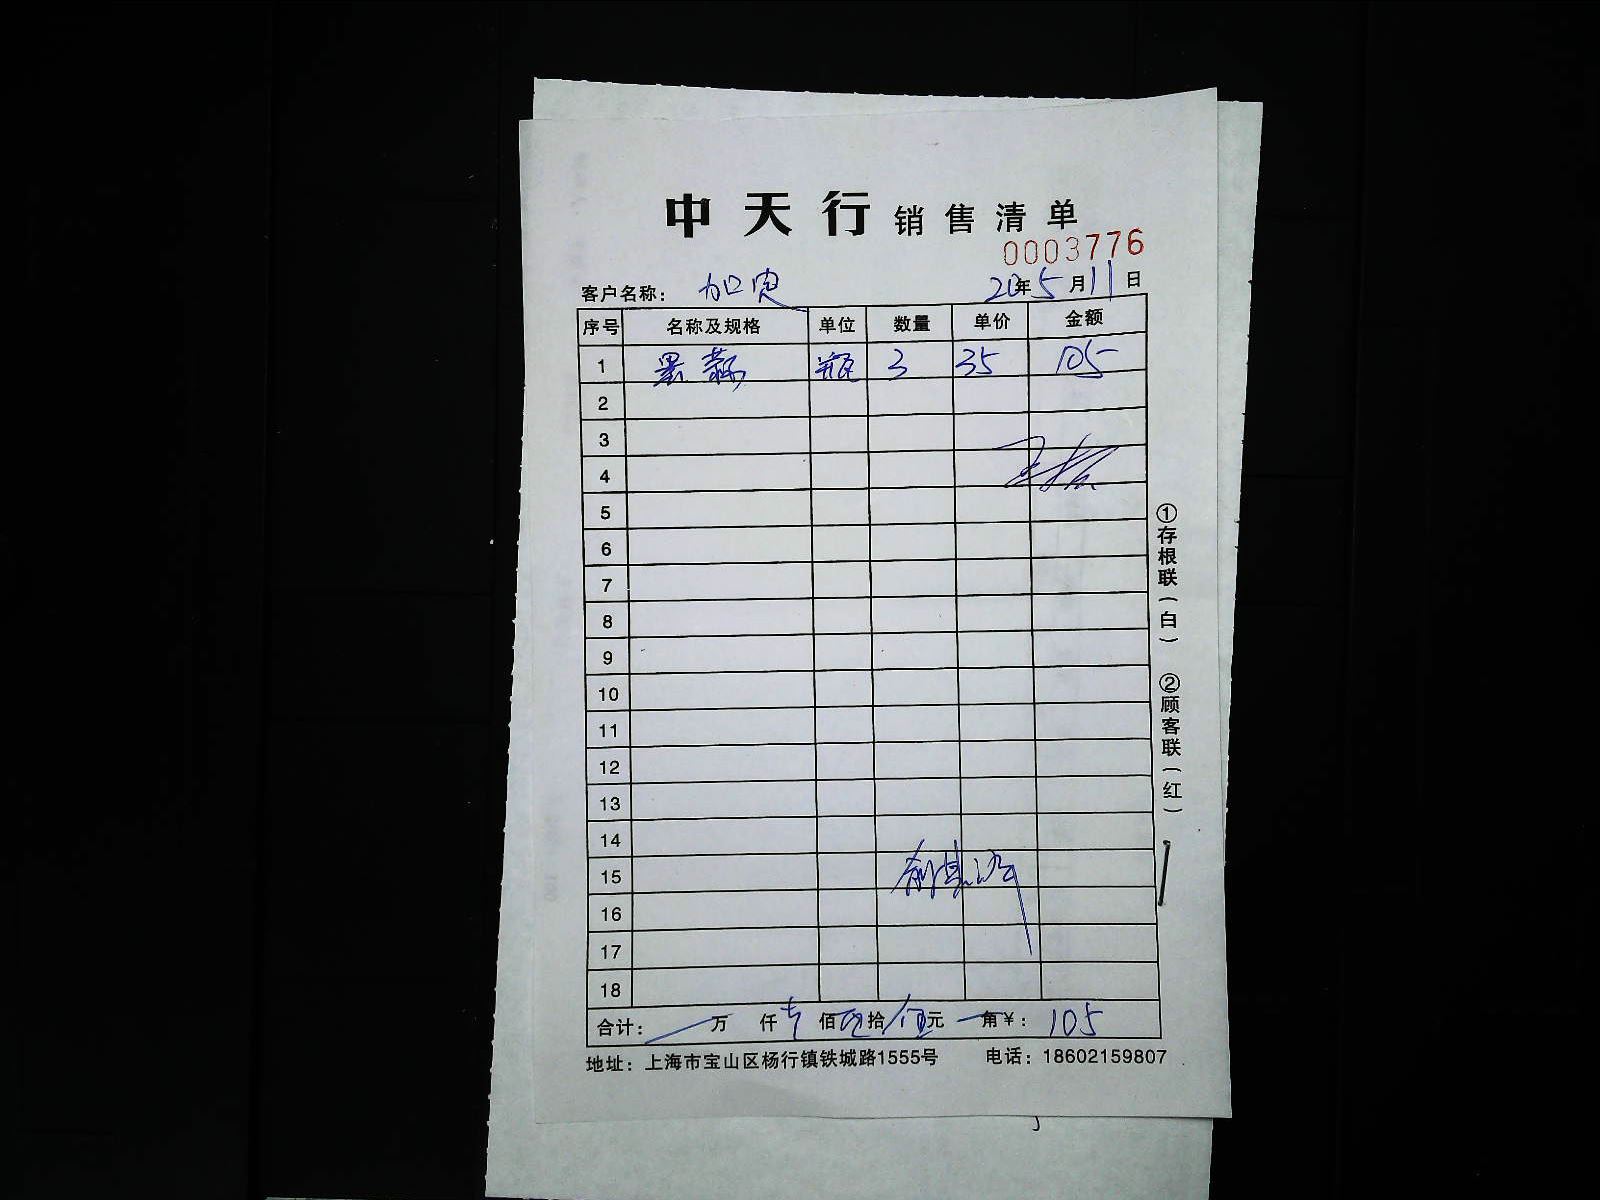 中天行 销售清单
0003776
客户名称： 加宽 20年5月11日
序号 名称及规格 单位 数量 单价 金额
1 墨 瓶 3 35 105
2
3
4
5
6
7
8
9
10
11
12
13
14
15
16
17
18
合计： 万 仟 佰 拾 伍元 角￥： 105
地址：上海市宝山区杨行镇铁城路1555号 电话：18602159807
①存根联（白） ②顾客联（红）